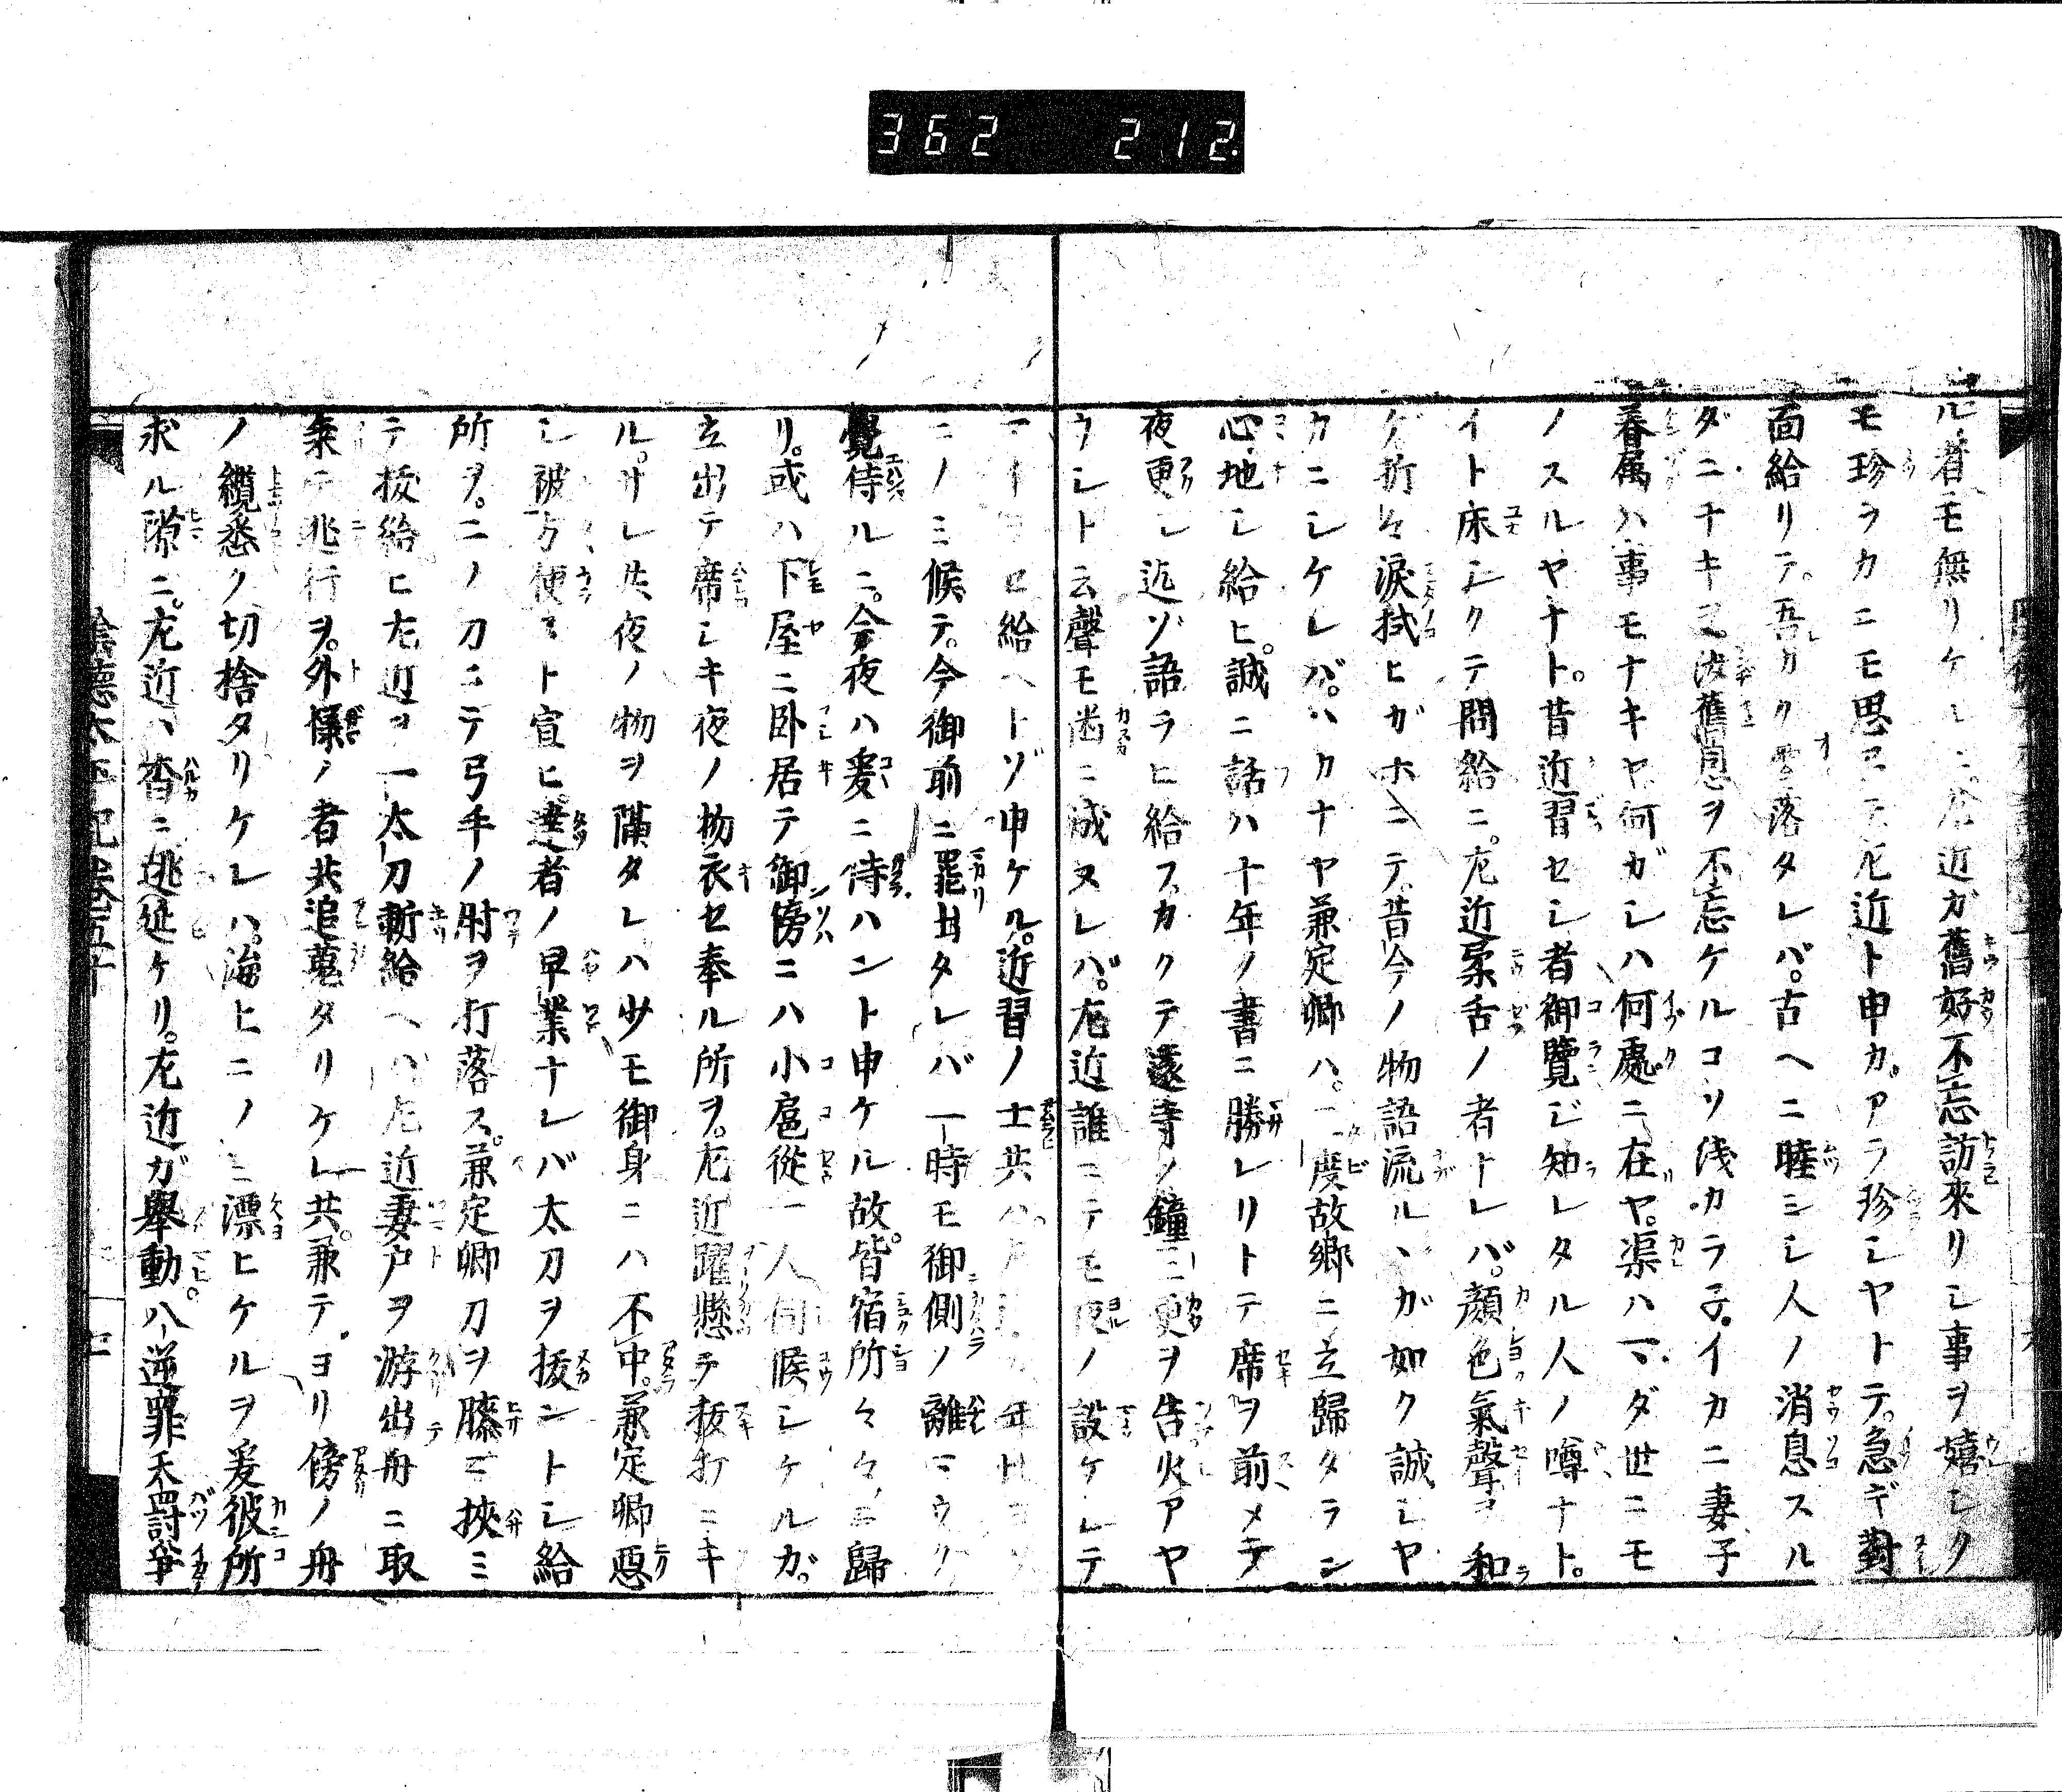 362 212.
ル者モ無リケレニ近ガ舊好不忘訪來リシ事ヲ嬉シク
モ珍ラカニモ思ヱテ左近ト申カアラ珍シヤトテ急ギ對
面給リテ吾カク零落タレバ古ヘニ睦ミシ人ノ消息スル
ダニナキニ汝舊恩ヲ不忘ケルコソ浅カラ子イカニ妻子
眷属ハ事モナキヤ何ガシハ何處ニ在ヤ渠ハマダ世ニモ
ノスルヤナト昔近習セシ者御覽ジ知レタル人ノ噂ナト
イト床シクテ問給ニ左近柔舌ノ者トレバ顔色氣聲ヲ和
ゲ折々涙拭ヒガホニテ昔今ノ物語流ルヽガ如ク誠シヤ
カニシケレバハカナヤ兼定卿ハ一度故郷ニ立歸タラン
心地シ給ヒ誠ニ話ハ十年ノ書ニ勝レリトテ席ヲ前メテ
夜更シ近ゾ語ラヒ給フカクテ遠寺ノ鐘三更ヲ告火アヤ
ウシト云聲モ幽ニ成ヌレバ左近誰ニテモ夜ノ設ケレテ
給ヘトゾ申ケル近習ノ士共ハ
ニノミ候テ今御前ニ罷出タレバ一時モ御側ノ離マウク
覺侍ルニ今夜ハ爰ニ侍ハント申ケル故皆宿所々々ニ歸
リ或ハ下屋ニ卧居テ御傍ニハ小扈從一人伺候シケルガ
立出テ席シキ夜ノ物衣セ奉ル所ヲ左近躍懸テ抜打ニキ
ルサレ共夜ノ物ヲ隔タレハ少モ御身ニハ不中兼定卿惡
シ被方便ヨト宣ヒ達者ノ早業ナレバ太刀ヲ抜ントシ給
所ヲニノ刀ニテ弓手ノ肘ヲ打落ス兼定卿刀ヲ膝ニ挾ミ
テ抜給ヒ左近ヲ一太刀斬給ヘハ左近妻戸ヲ游出舟ニ取
乗テ逃行ヲ外様ノ者共追蒐タリケレ共兼テヨリ傍ノ舟
ノ纜悉ク切捨タリケレハ海上ニノミ漂ヒケルヲ爰彼所
求ル隙ニ左近ハ杳ニ逃延ケリ左近ガ舉動ハ逆罪天罸爭
陰德太平記卷五十